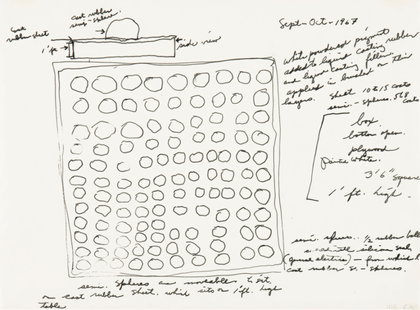 Sept-Oct-1967
cast rubber
semi-sphere.
cast
rubber sheet
1' ft
side view
White powdered pigment
added to liquid casting rubber
and liquid casting filler
applied in brushed on thin
layers. Sheet 10 to 15 coats
semi-spheres. 5 to 8
coats
box.
bottom open.
plywood
painted white.
3' 6" square
1' ft. high.
semi. spheres. 1/2 rubber balls
silicon seal
(general electric) - from which
cast rubber spheres.
semi. spheres are moveable
on cast rubber sheet, which sits on 1' ft. high
table